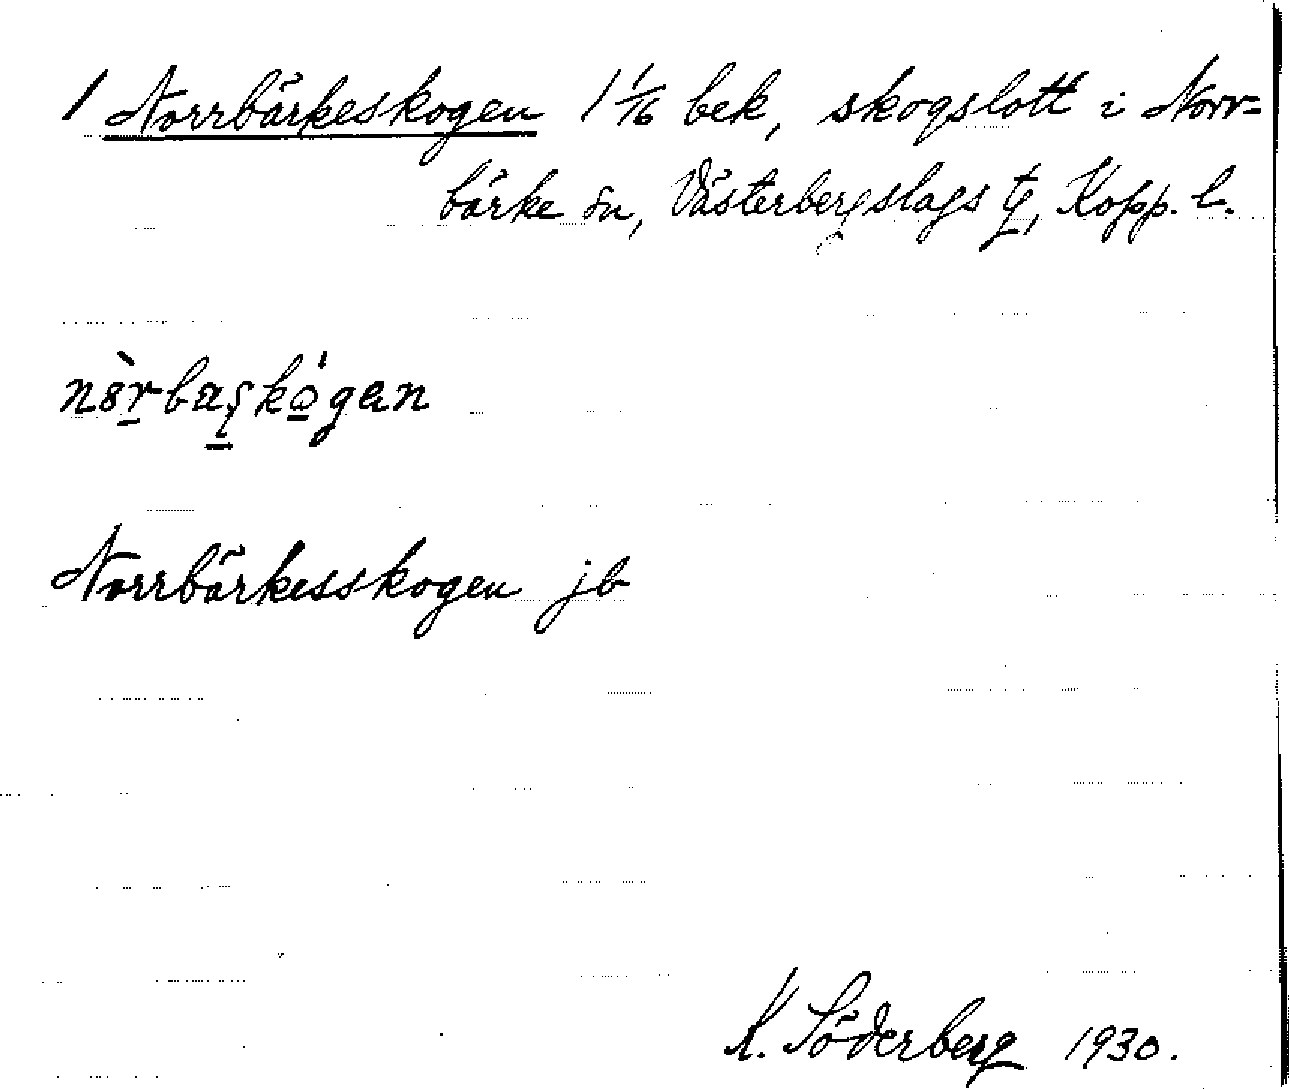 1 Norrbärkeskogen 1 1/16 bek, skogslott i Norr=
bärke sn, Västerbergslags tg, Kopp. l.
Norrbärkesskogen jb
K. Söderberg 1930.